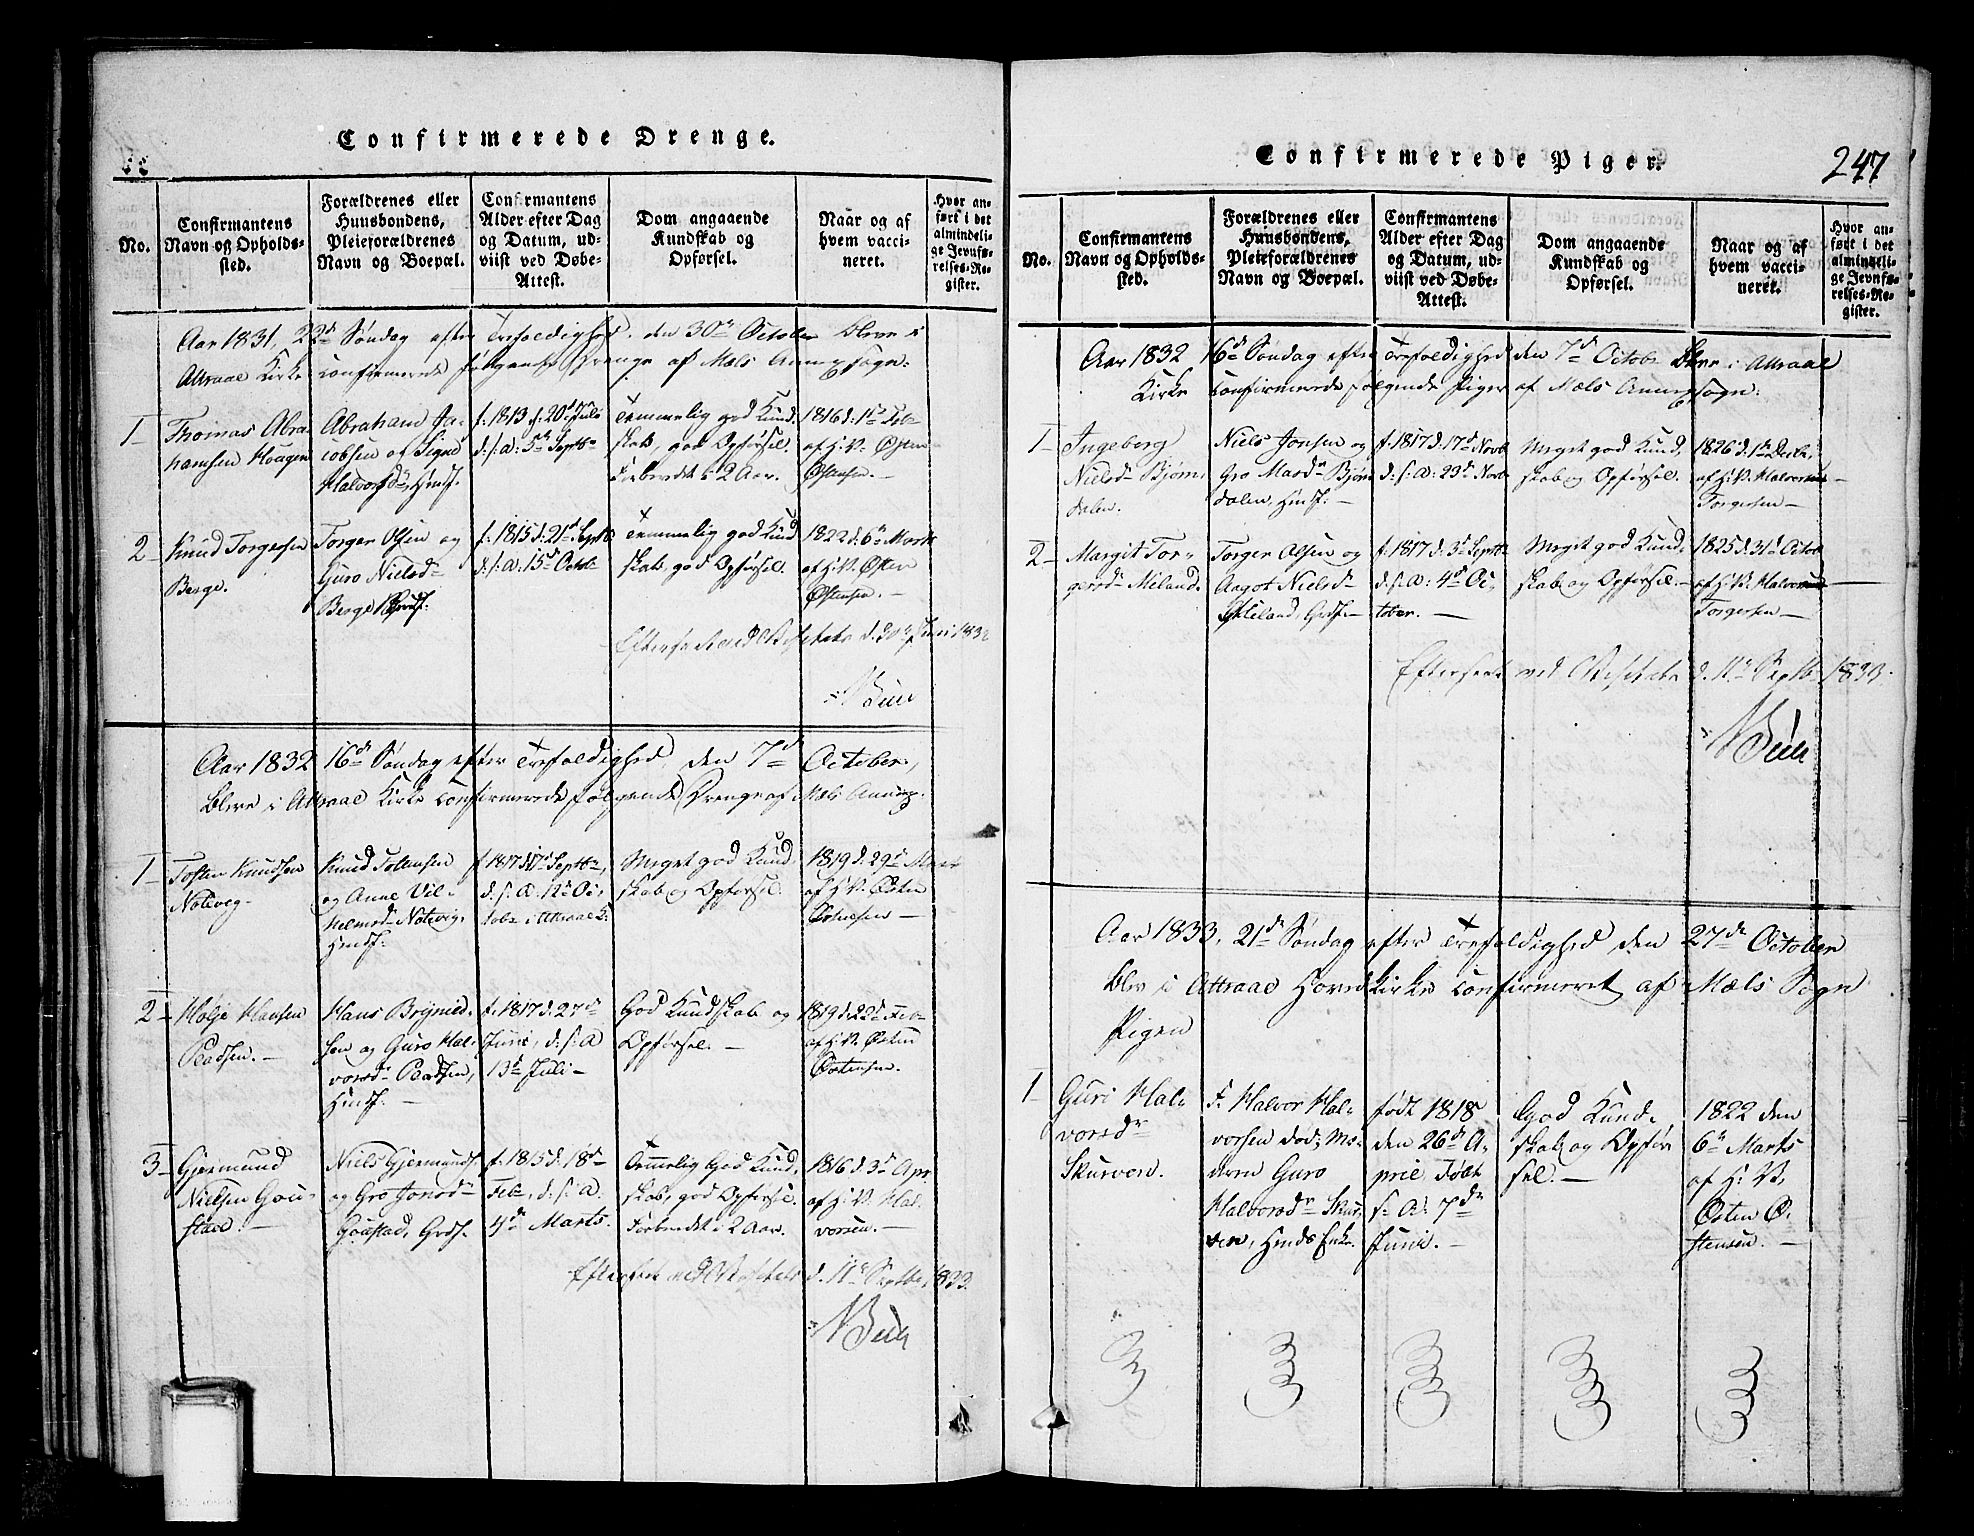 Confirmerede Drenge.
No.
Confirmantens
Navn og Opholds-
sted.
Forældrenes eller
Huusbondens,
Pleieforældrenes
Navn og Boepæl.
Confirmantens
Alder efter Dag
og Datum, ud-
viist ved Døbe-
Attest.
Dom angaaende
Kundskab og
Opførsel.
Naar og af
hvem vacci-
neret.
Hvor an-
ført i det
almindeli-
ge Jevnfø-
relses-Re-
gister.
Aar 1831, 22d Søndag efter Trefoldighed, den 30te October bleve i
Attraae Kirke confirmerede følgende Drenge af Mæls Annexsogn:
1
Thomas Abra
hamsen Haugen
Abraham Ja-
cobsen og Signe
Halvorsdr, Hmdf.
f. 1813 d. 20d Juli
d. s. a: 5te Septbr
Temmelig god Kund
skab, god Opførsel.
Forberedt i 2 Aar.
1816 d. 1te Feb
af H. V. Østen
Østensen.
2
Knud Torgersen
Berge.
Torger Olsen og
Guro Nielsd
Berge
f. 1815 d. 21d Septb
d. s. a: 15d Octob
Temmelig god Kund
skab, god Opførsel.
1822 d. 6te Marts
af H. V. Østen
Østensen.
Efterseet ved Visitats d. 30te Juni 1832
Aar 1832 16de Søndag efter Trefoldighed, den 7de October,
bleve i Attraae Kirke confirmerede følgende Drenge af Mæls Annex.
1
Tosten Knudsen
Noteveg
Knud Tollensen
og Anne Vil-
helmsd Notevig,
Hmdf.
f. 1817 d. 17d Septbr,
d. s. a. 12te Oc-
tobr i Attraae K.
Meget god Kund
skab og Opførsel.
1819 d. 29d Mai
af H. V. Østen
Østensen
2
Hølje Hansen
Hans Brynild-
sen og Guro Hal-
vorsd
Hmdf.
f. 1817 d. 27de
Juni, d. s. a
13d Juli
God Kundskab og
Opførsel.
1819 d. 22d Feb
af H. V. Østen
Østensen
3
Gjermund
Nielsen Gou-
stad
Niels Gjermunds.
og Gro Jonsdr
Goustad, Grdf.
f. 1815 d. 18de
Feb, d. s. a.
4de Marts.
Temmelig God Kund
skab, god Opførsel.
Forberedt i 2 Aar.
1816 d. 3d Apr
af H. V. Hal
vorsen.
Efterseet ved Visitats d. 11te Septbr 1833.
Confirmerede Piger.
247
No.
Confirmantens
Navn og Opholds-
sted.
Forældrenes eller
Huusbondens,
Pleieforældrenes
Navn og Boepæl.
Confirmantens
Alder efter Dag
og Datum, ud-
viist ved Døbe-
Attest.
Dom angaaende
Kundskab og
Opførsel.
Naar og af
hvem vacci-
neret.
Hvor an-
ført i det
almindeli-
ge Jevnfø-
relses-Re-
gister.
Aar 1832 16de Søndag efter Trefoldighed den 7de Octobr bleve i Attraae
Kirke confirmerede følgende Piger af Mæls Annexsogn:
1
Ingeborg
Nielsd Bjørn
dalen.
Niels Jonsen og
Gro Marsd Bjørn
dalen, Hmdf.
f. 1817 d. 17d Novb
d. s. a: 23d Novb
Meget god Kund
skab og Opførsel.
1826 d. 1te Decbr,
af H. V. Halvorsen
Torgersen
2
Margit Tor-
gersd Miland.
Torger Olsen og
Aagot Nielsd
Miland, Grdf.
f. 1817 d. 3d Septb
d. s. a: 4d Oc-
tober.
Meget god Kund
skab og Opførsel.
1825 d. 31d Octob
af H. V. Halvorsen
Torgersen
Efterseet ved Visitats d. 11te Septbr 1833.
Aar 1833, 21de Søndag efter Trefoldighed den 27de October
blev i Attraae Hovedkirke confirmeret af Mæls Sogn
Pigen
1
Guri Hal-
vorsdr
Skurven.
F. Halvor Hal-
vorsen død; Mo-
deren Guro
Halvorsdr Skur
ven, Hmds Enke.
født 1818
den 26de A-
pril, døbt
s. A. 7de
Juni.
God Kund-
skab og Opfør
sel.
1822 den
6te Marts
af H. V.
Østen Ø-
stensen.